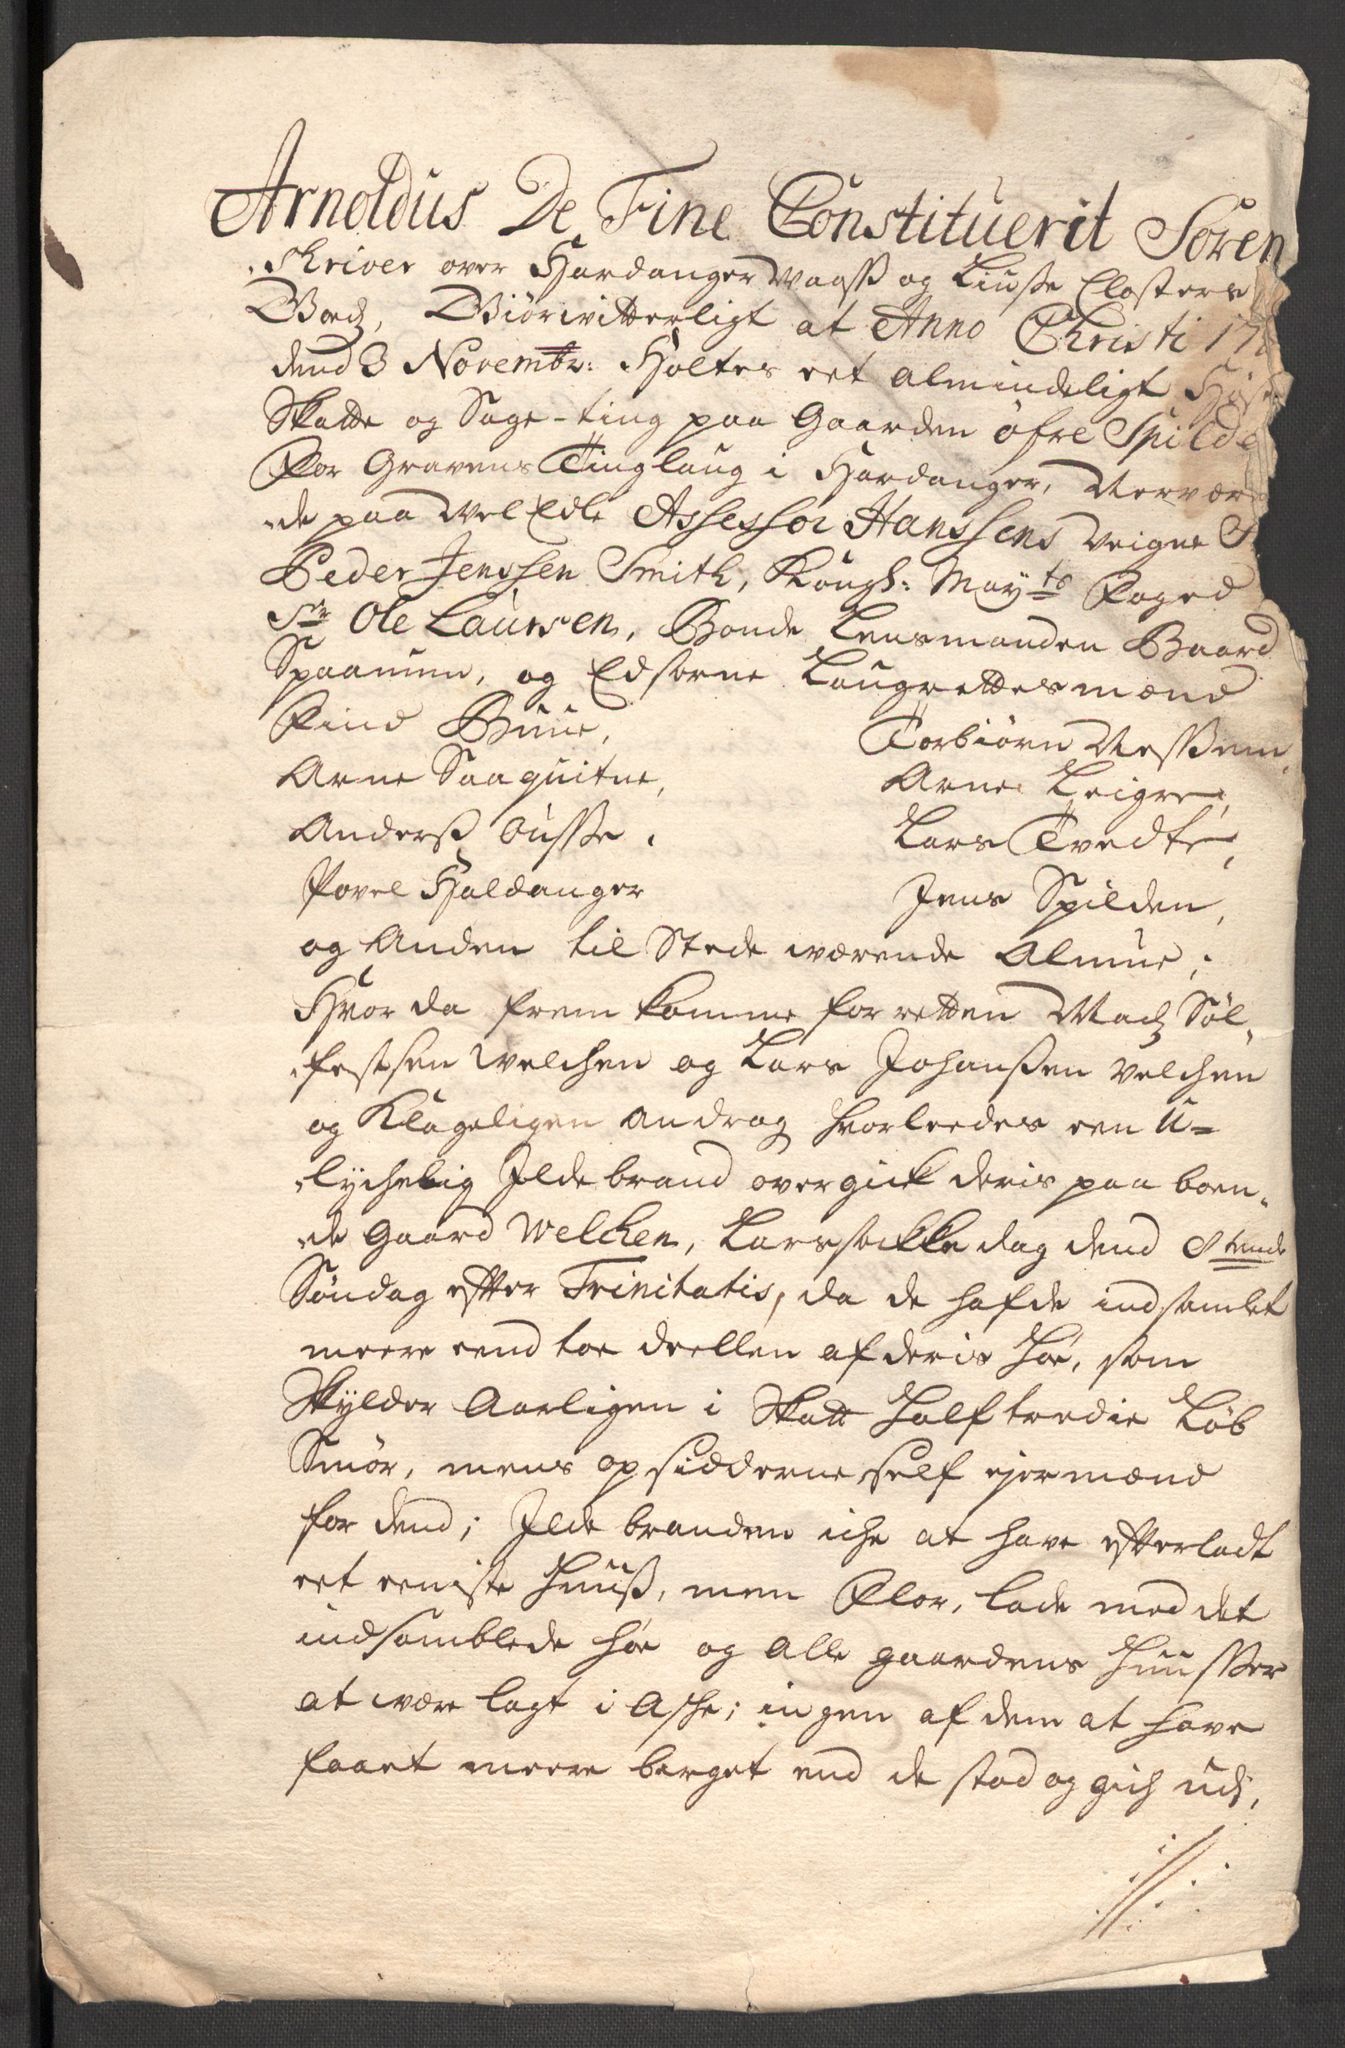 Arnoldus De Fine Constituerit Soren
skriver over Hardanger Waass og Liusse Closters
Goedz, Giör witterligt at Anno Christi 17
dend 3 Novembr: Holtes eet almindeligt Høst
Skatte og Sage-ting paa Gaarden øfre Spilde
For Gravens Tinglaug i Hardanger, Nerværen
de paa WelEdle Assessor Hanssens Veigne S
Peder Jenssen Smith, Kongl: Mayts Foged
Sr Ole Laursen, Bonde Lensmanden Baard
Spaanem, og Edsorne Laugrettesmænd
Find Bue, Torbiørn Nessem,
Arne Saaquitne, Arne Leigre,
Anderss Ousse, Lars Tvedte,
Povel Haldanger Jens Spilden,
og Anden til Stede wærende Almue;
Hvor da frem komme for retten Madz Søl-
festsen Welchen og Lars Johanssen Velchen
og Klageligen Andrag hvorleedes een U-
lychelig Ilde brand overgick deris paa boen-
de Gaard Welchen, Larssokke dag dend 8tende
Søndag efter Trinitatis, da de hafde indsamlet
meere end toe deellen af deris Høe, som
Skylder Aarligen i Skatt Halftredie Løb
Smør, mens opsidderne self ejermænd
for dend; Ilde branden iche at have efterladt
eet eeniste Huuss, men Flor, lade med det
indsamblede høe og alle gaardens Huusser
at være lagt i Asche; ingen af dem at have
faaet meere berget end de stod og gich udj,